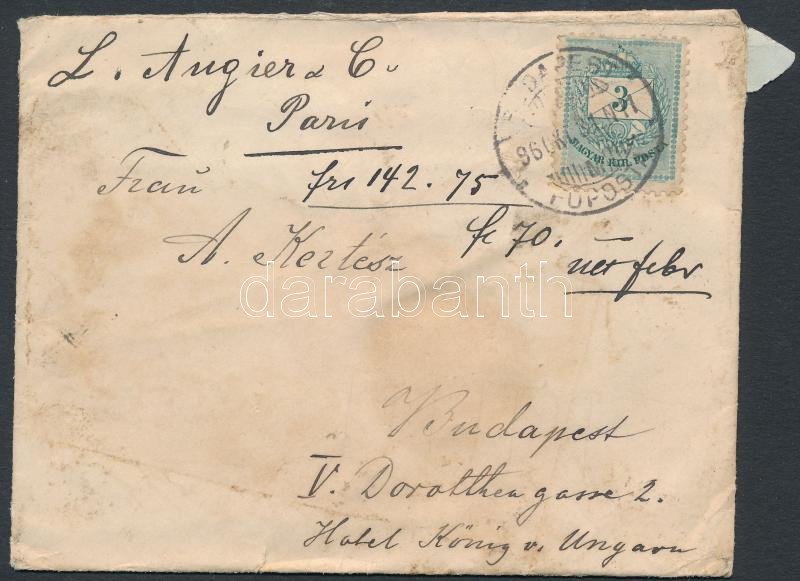 L. Augier & Co
Paris
BUDAPEST
FŐPOST
3
MAGYAR KIR. POSTA
Frau
frs 142.75
A. Kertész
fr 70.
febr
darabanth
Budapest
V. Dorottheagasse 2.
Hotel König v. Ungarn